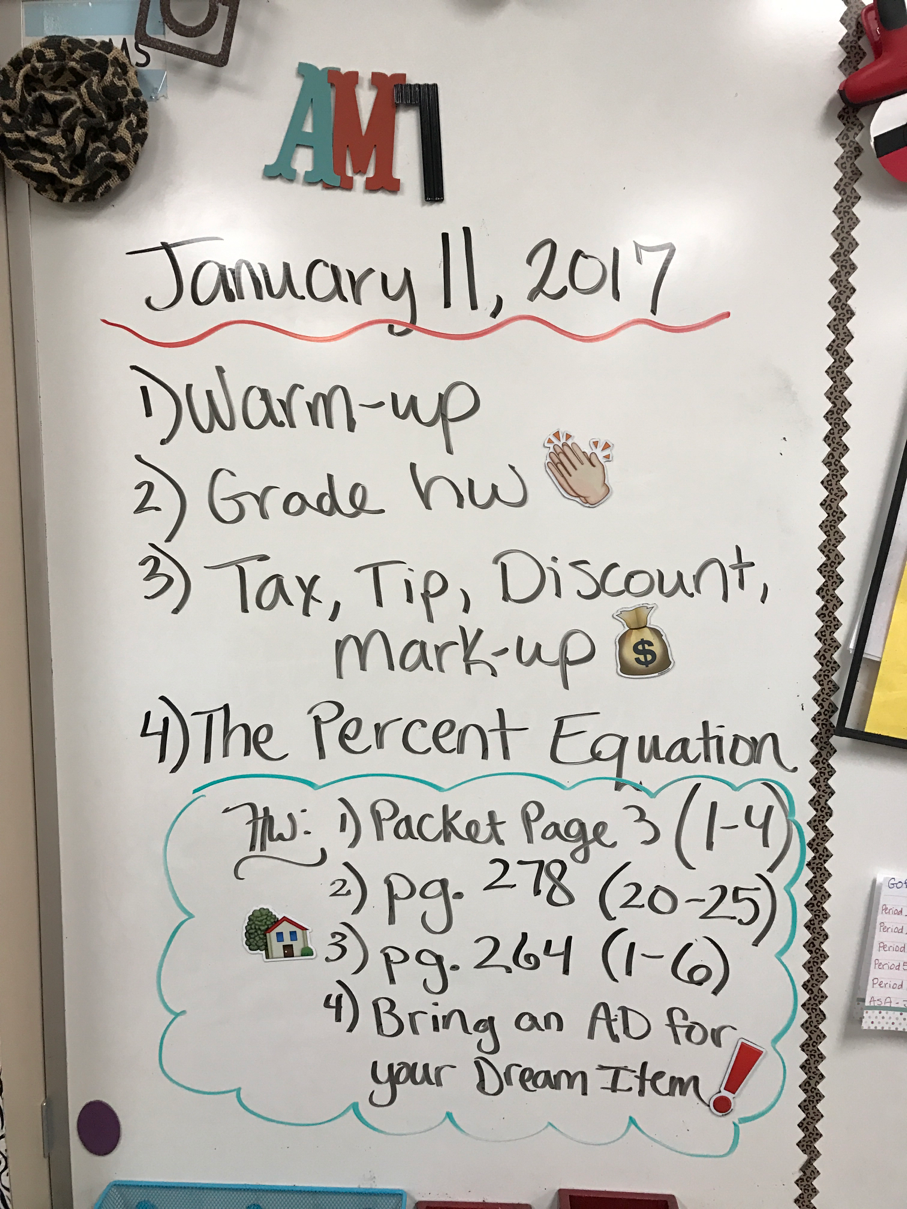 MS
AM7
January 11, 2017
1) Warm-up
2) Grade hw
3) Tax, Tip, Discount,
Mark-up
$
4) The Percent Equation
HW: 1) Packet Page 3 (1-4)
2) pg. 278 (20-25)
3) pg. 264 (1-6)
4) Bring an AD for
your Dream Item
Period
Period
Period
Period 5
Period
ASA-